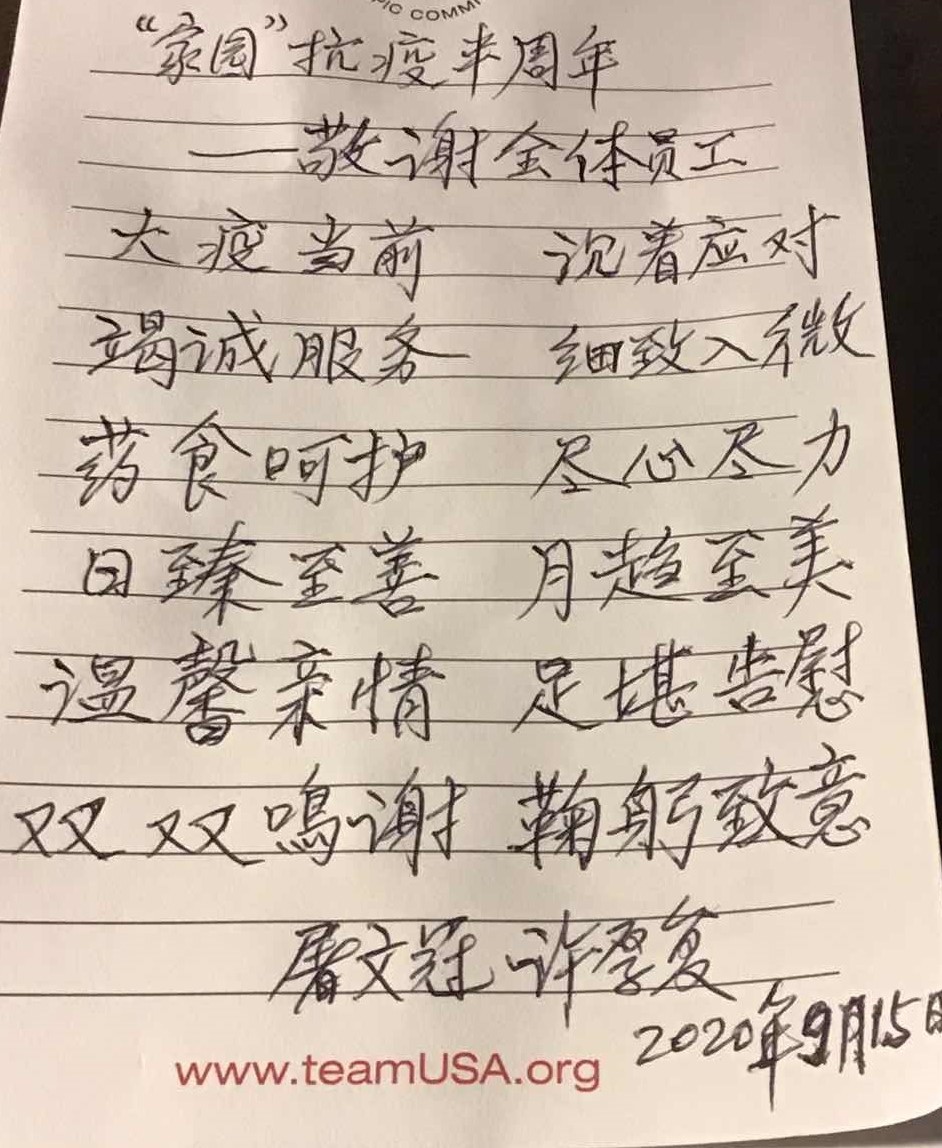 PIC COMMI
“家园”抗疫半周年
——敬谢全体员工
大疫当前 沉着应对
竭诚服务 细致入微
药食呵护 尽心尽力
日臻至善 月趋至美
温馨亲情 足堪告慰
双双鳴谢 鞠躬致意
屠文冠 许学复
2020年9月15日
www.teamUSA.org